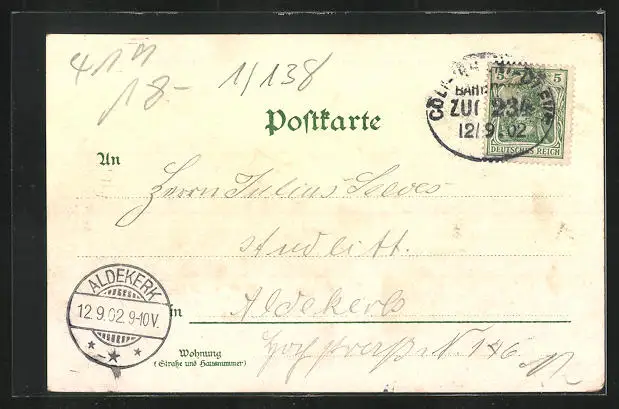 1/138
18-
Postkarte
5
DEUTSCHES REICH
BAHN
ZUG 23A
12/9 02
An
Herrn Julius
stud litt.
ALDEKERK
12.9.02.9-10V.
in
Aldekerk
Wohnung
(Straße und Hausnummer)
Hochstraße N. 146